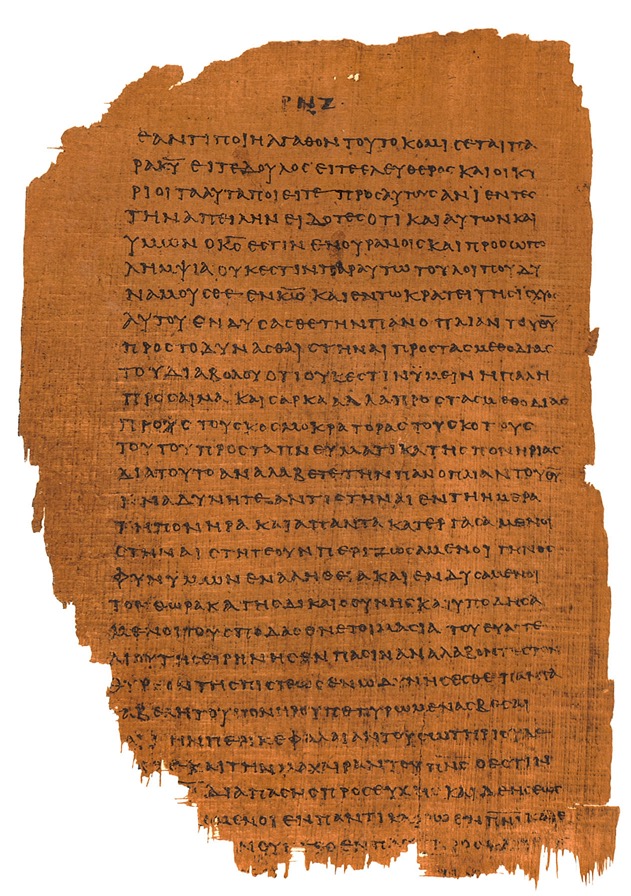 ΡΝΖ
ΕΑΝΤΙ ΠΟΙΗ ΑΓΑΘΟΝ ΤΟΥΤΟ ΚΟΜΙΣΕΤΑΙ ΠΑ
ΡΑ Κ̅Υ̅ ΕΙΤΕ ΔΟΥΛΟΣ ΕΙΤΕ ΕΛΕΥΘΕΡΟΣ ΚΑΙ ΟΙ ΚΥ
ΡΙΟΙ ΤΑ ΑΥΤΑ ΠΟΙΕΙΤΕ ΠΡΟΣ ΑΥΤΟΥΣ ΑΝΙΕΝΤΕΣ
ΤΗΝ ΑΠΕΙΛΗΝ ΕΙΔΟΤΕΣ ΟΤΙ ΚΑΙ ΑΥΤΩΝ ΚΑΙ
ΥΜΩΝ Ο Κ̅Σ̅ ΕΣΤΙΝ ΕΝ ΟΥΡΑΝΟΙΣ ΚΑΙ ΠΡΟΣΩΠΟ
ΛΗΜΨΙΑ ΟΥΚ ΕΣΤΙΝ ΠΑΡ ΑΥΤΩ ΤΟΥ ΛΟΙΠΟΥ ΔΥ
ΝΑΜΟΥΣΘΕ ΕΝ Κ̅Ω̅ ΚΑΙ ΕΝ ΤΩ ΚΡΑΤΕΙ ΤΗΣ ΙΣΧΥΟΣ
ΑΥΤΟΥ ΕΝΔΥΣΑΣΘΕ ΤΗΝ ΠΑΝΟΠΛΙΑΝ ΤΟΥ Θ̅Υ̅
ΠΡΟΣ ΤΟ ΔΥΝΑΣΘΑΙ ΣΤΗΝΑΙ ΠΡΟΣ ΤΑΣ ΜΕΘΟΔΙΑΣ
ΤΟΥ ΔΙΑΒΟΛΟΥ ΟΤΙ ΟΥΚ ΕΣΤΙΝ ΫΜΕΙΝ Η ΠΑΛΗ
ΠΡΟΣ ΑΙΜΑ ΚΑΙ ΣΑΡΚΑ ΑΛΛΑ ΠΡΟΣ ΤΑΣ ΜΕΘΟΔΙΑΣ
ΠΡΟΣ ΤΟΥΣ ΚΟΣΜΟΚΡΑΤΟΡΑΣ ΤΟΥ ΣΚΟΤΟΥΣ
ΤΟΥΤΟΥ ΠΡΟΣ ΤΑ ΠΝΕΥΜΑΤΙΚΑ ΤΗΣ ΠΟΝΗΡΙΑΣ
ΔΙΑ ΤΟΥΤΟ ΑΝΑΛΑΒΕΤΕ ΤΗΝ ΠΑΝΟΠΛΙΑΝ ΤΟΥ Θ̅Υ̅
ΙΝΑ ΔΥΝΗΤΕ ΑΝΤΙΣΤΗΝΑΙ ΕΝ ΤΗ ΗΜΕΡΑ
ΤΗ ΠΟΝΗΡΑ ΚΑΙ ΑΠΑΝΤΑ ΚΑΤΕΡΓΑΣΑΜΕΝΟΙ
ΣΤΗΝΑΙ ΣΤΗΤΕ ΟΥΝ ΠΕΡΙΖΩΣΑΜΕΝΟΙ ΤΗΝ ΟΣ
ΦΥΝ ΥΜΩΝ ΕΝ ΑΛΗΘΕΙΑ ΚΑΙ ΕΝΔΥΣΑΜΕΝΟΙ
ΤΟΝ ΘΩΡΑΚΑ ΤΗΣ ΔΙΚΑΙΟΣΥΝΗΣ ΚΑΙ ΥΠΟΔΗΣΑ
ΜΕΝΟΙ ΤΟΥΣ ΠΟΔΑΣ ΕΝ ΕΤΟΙΜΑΣΙΑ ΤΟΥ ΕΥΑΓΓΕ
ΛΙΟΥ ΤΗΣ ΕΙΡΗΝΗΣ ΕΝ ΠΑΣΙΝ ΑΝΑΛΑΒΟΝΤΕΣ ΤΟΝ
ΘΥΡΕΟΝ ΤΗΣ ΠΙΣΤΕΩΣ ΕΝ Ω ΔΥΝΗΣΕΣΘΕ ΠΑΝΤΑ
ΤΑ ΒΕΛΗ ΤΟΥ ΠΟΝΗΡΟΥ ΠΕΠΥΡΩΜΕΝΑ ΣΒΕΣΑΙ
ΚΑΙ ΤΗΝ ΠΕΡΙΚΕΦΑΛΑΙΑΝ ΤΟΥ ΣΩΤΗΡΙΟΥ
ΚΑΙ ΤΗΝ ΜΑΧΑΙΡΑΝ ΤΟΥ Π̅Ν̅Σ̅ Ο ΕΣΤΙΝ
ΔΙΑ ΠΑΣΗΣ ΠΡΟΣΕΥΧΗΣ ΚΑΙ ΔΕΗΣΕΩΣ
ΜΕΝΟΙ ΕΝ ΠΑΝΤΙ ΚΑΙΡΩ ΕΝ Π̅Ν̅Ι̅ ΚΑΙ Ε